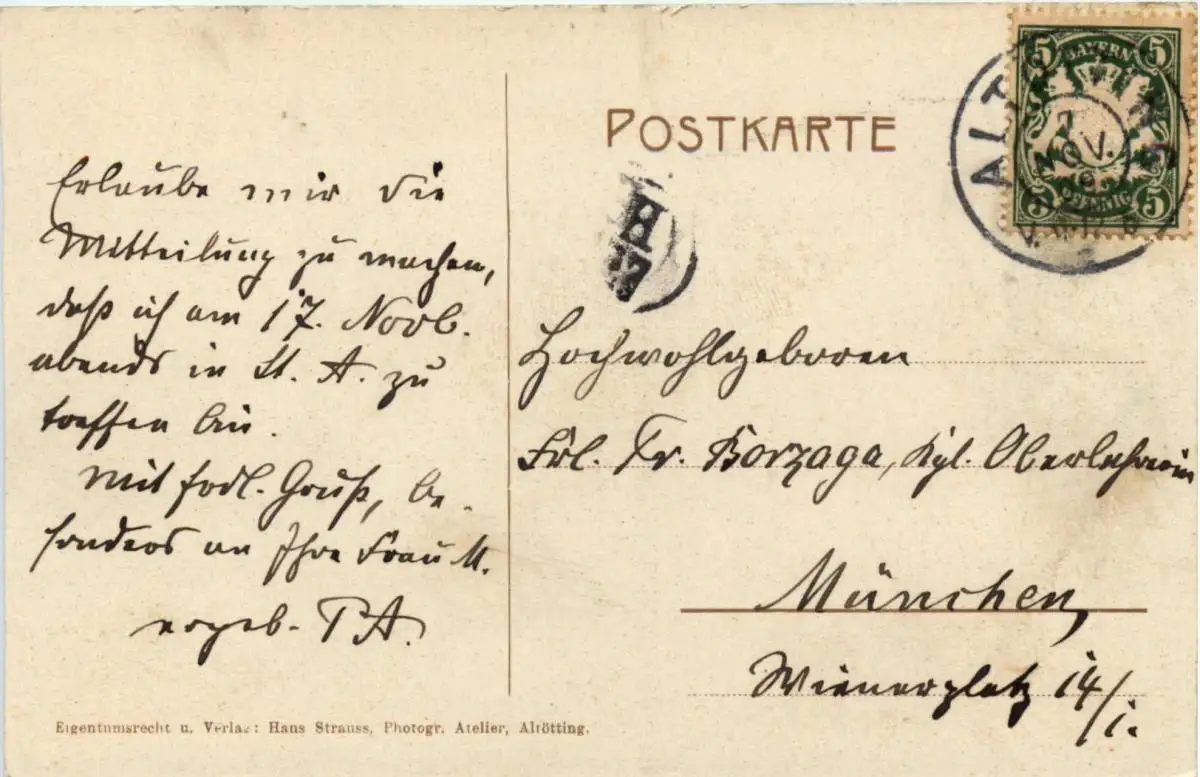 POSTKARTE
Erlaube mir die
Mitteilung zu machen,
daß ich am 17. Novb.
abends in St. A. zu
treffen bin.
Mit frdl. Gruß, be-
sonders an Ihre Frau M.
ergeb. P A.
Hochwohlgeboren
Frl. Fr. Borzaga, Kgl. Oberlehrerin
München,
Wienerplatz 14/I.
5 BAYERN 5
5 PFENNIG 5
ALT
7
NOV.
Eigentumsrecht u. Verlag: Hans Strauss, Photogr. Atelier, Altötting.